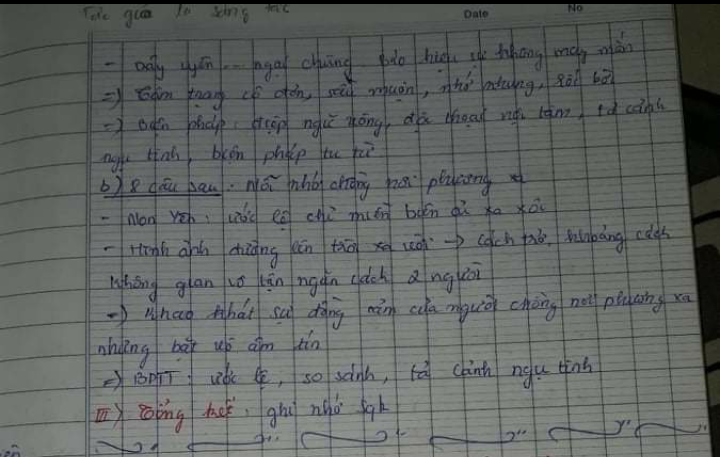 Date No
- Dây uyên ... ngại chùng báo hiệu sự không may mắn
=) Tâm trạng cô đơn, sầu muộn, nhớ nhung, rối bời
=) nghệ pháp: điệp ngữ vòng, độc thoại nội tâm, tả cảnh
ngụ tình, biện pháp tu từ
b) 8 câu sau: Nỗi nhớ chồng nơi phương xa
- Non Yên: ước lệ chỉ miền biên ải xa xôi
- Hình ảnh đường lên trời xa vời -> cách trở, khoảng cách
không gian vô tận ngăn cách 2 người
-) khao khát sự đồng cảm của người chồng nơi phương xa
nhưng bặt vô âm tín
=) BPTT: ước lệ, so sánh, tả cảnh ngụ tình
III) Tổng kết: ghi nhớ sgk